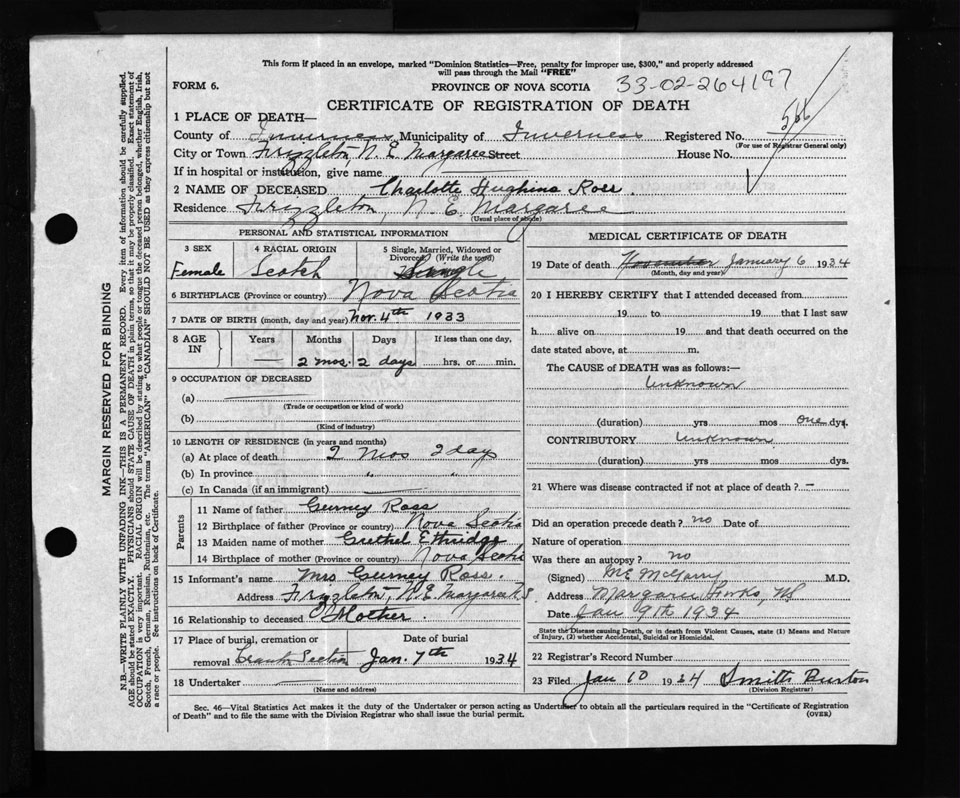 This form if placed in an envelope, marked "Dominion Statistics—Free, penalty for improper use, $300," and properly addressed
will pass through the Mail "FREE"
FORM 6.
PROVINCE OF NOVA SCOTIA
33-02-264197
CERTIFICATE OF REGISTRATION OF DEATH
1 PLACE OF DEATH—
566
County of Inverness Municipality of Inverness Registered No.
(For use of Registrar General only)
City or Town Frizzleton, N. E. Margaree Street House No.
If in hospital or institution, give name
2 NAME OF DECEASED Charlotte Hughina Ross.
Residence Frizzleton, N. E. Margaree
(Usual place of abode)
PERSONAL AND STATISTICAL INFORMATION
3 SEX 4 RACIAL ORIGIN 5 Single, Married, Widowed or
Divorced (Write the word)
Female Scotch Single
6 BIRTHPLACE (Province or country) Nova Scotia
7 DATE OF BIRTH (month, day and year) Nov. 4th 1933
8 AGE IN Years Months Days If less than one day,
— 2 mos. 2 days hrs. or min.
9 OCCUPATION OF DECEASED
(a)
(Trade or occupation or kind of work)
(b)
(Kind of industry)
10 LENGTH OF RESIDENCE (in years and months)
(a) At place of death 2 mos 2 day
(b) In province " "
(c) In Canada (if an immigrant)
Parents
11 Name of father Gurney Ross
12 Birthplace of father (Province or country) Nova Scotia
13 Maiden name of mother Ethridge
14 Birthplace of mother (Province or country) Nova Scotia
15 Informant's name Mrs Gurney Ross.
Address Frizzleton, N.E. Margaree N.S
16 Relationship to deceased Mother.
17 Place of burial, cremation or Date of burial
removal Section Jan. 7th 1934
18 Undertaker —
(Name and address)
MEDICAL CERTIFICATE OF DEATH
19 Date of death November January 6 1934
(Month, day and year)
20 I HEREBY CERTIFY that I attended deceased from
19 to 19 that I last saw
h alive on 19 and that death occurred on the
date stated above, at m.
The CAUSE of DEATH was as follows:—
Unknown
(duration) yrs mos one dys.
CONTRIBUTORY Unknown
(duration) yrs mos dys.
21 Where was disease contracted if not at place of death? —
Did an operation precede death? no Date of
Nature of operation
Was there an autopsy? no
(Signed) M.E. McGarry M.D.
Address Margaree Forks, NS
Date Jan 9th 1934
State the Disease causing Death, or in death from Violent Causes, state (1) Means and Nature
of Injury, (2) whether Accidental, Suicidal or Homicidal.
22 Registrar's Record Number
23 Filed Jan 10 1934 Smith Burton
(Division Registrar)
Sec. 46—Vital Statistics Act makes it the duty of the Undertaker or person acting as Undertaker to obtain all the particulars required in the "Certificate of Registration
of Death" and to file the same with the Division Registrar who shall issue the burial permit.
(OVER)
MARGIN RESERVED FOR BINDING
N.B.—WRITE PLAINLY WITH UNFADING INK—THIS IS A PERMANENT RECORD. Every item of information should be carefully supplied.
AGE should be stated EXACTLY. PHYSICIANS should STATE CAUSE OF DEATH in plain terms, so that it may be properly classified. Exact statement of
OCCUPATION is very important. RACIAL ORIGIN will be described by stating to what people or tongue the deceased person belonged, whether English, Irish,
Scotch, French, German, Russian, Ruthenian, etc. The terms "AMERICAN" or "CANADIAN" SHOULD NOT BE USED as they express citizenship but not
a race or people. See instructions on back of Certificate.